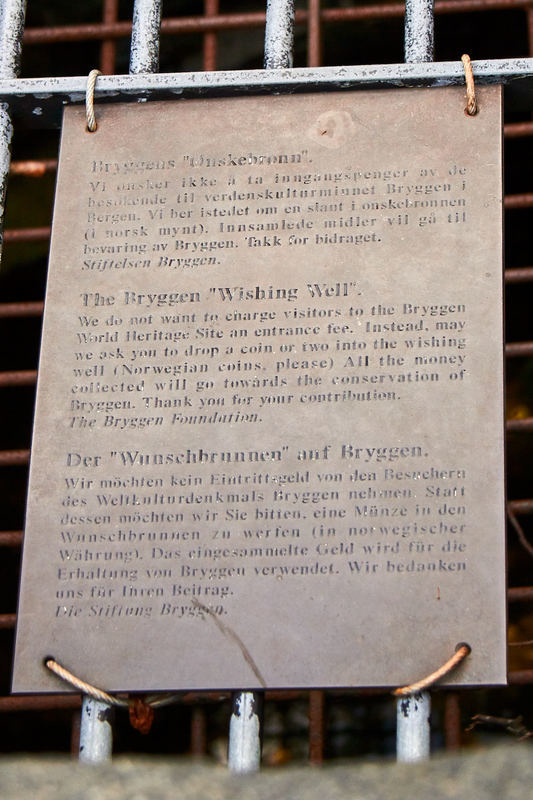 Bryggens "Ønskebrønn".
Vi ønsker ikke å ta inngangspenger av de
besøkende til verdenskulturminnet Bryggen i
Bergen. Vi ber istedet om en slant i ønskebrønnen
(i norsk mynt). Innsamlede midler vil gå til
bevaring av Bryggen. Takk for bidraget.
Stiftelsen Bryggen.
The Bryggen "Wishing Well".
We do not want to charge visitors to the Bryggen
World Heritage Site an entrance fee. Instead, may
we ask you to drop a coin or two into the wishing
well (Norwegian coins, please) All the money
collected will go towards the conservation of
Bryggen. Thank you for your contribution.
The Bryggen Foundation.
Der "Wunschbrunnen" auf Bryggen.
Wir möchten kein Eintrittsgeld von den Besuchern
des Weltkulturdenkmals Bryggen nehmen. Statt
dessen möchten wir Sie bitten, eine Münze in den
Wunschbrunnen zu werfen (in norwegischer
Währung). Das eingesammelte Geld wird für die
Erhaltung von Bryggen verwendet. Wir bedanken
uns für Ihren Beitrag.
Die Stiftung Bryggen.